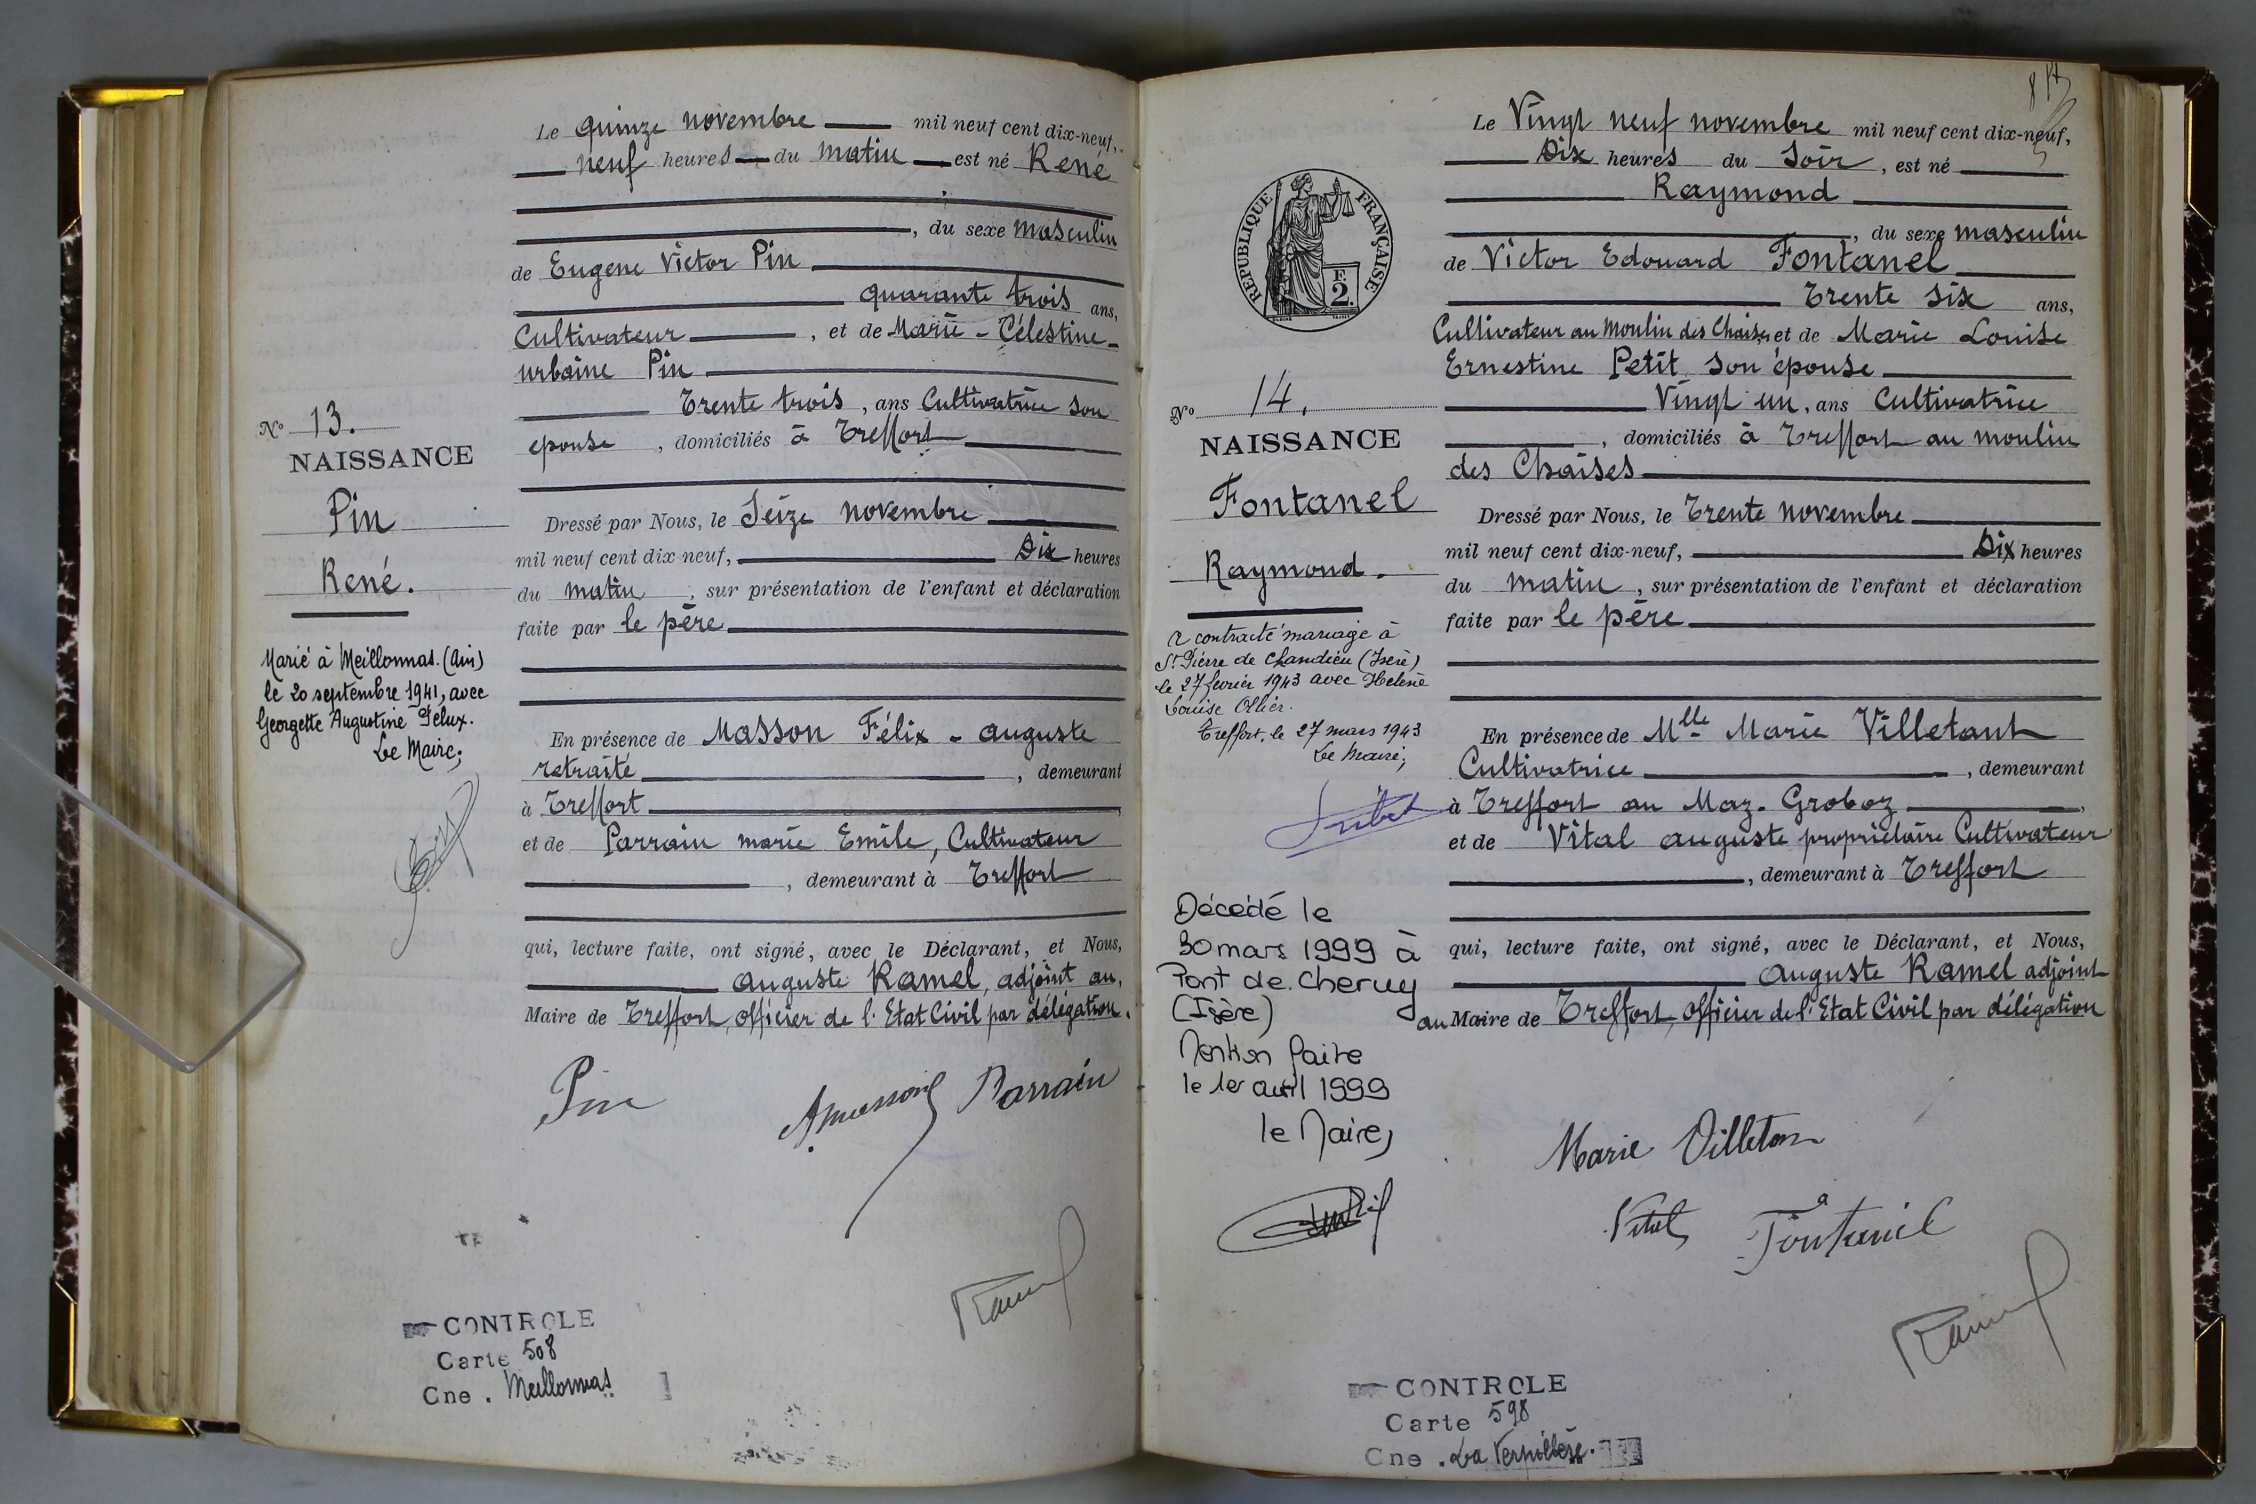 Le quinze novembre mil neuf cent dix-neuf,
neuf heures du matin est né René
, du sexe masculin
de Eugene Victor Pin
quarante trois ans,
Cultivateur , et de Marie - Célestine -
urbaine Pin
Trente trois , ans Cultivatrice son
epouse , domiciliés à Treffort
Dressé par Nous, le Seize novembre
mil neuf cent dix neuf, Dix heures
du matin , sur présentation de l'enfant et déclaration
faite par le père
En présence de Masson Félix - auguste
retraite , demeurant
à Treffort ,
et de Parrain marie Emile, Cultivateur
, demeurant à Treffort
qui, lecture faite, ont signé, avec le Déclarant, et Nous,
auguste Ramel, adjoint au,
Maire de Treffort, officier de l'Etat Civil par délégation.
Pin
Amasson Parrain
Ramel
No 13.
NAISSANCE
Pin
René.
Marié à Meillonnas. (Ain)
le 20 septembre 1941, avec
Georgette Augustine Pélux.
Le Maire;
CONTROLE
Carte 508
Cne . Meillonnas
Le Vingt neuf novembre mil neuf cent dix-neuf,
Dix heures du Soir , est né
Raymond
, du sexe masculin
de Victor Edouard Fontanel
Trente six ans,
Cultivateur au Moulin des Chaises et de Marie Louise
Ernestine Petit son épouse
Vingt un , ans Cultivatrice
, domiciliés à Treffort au moulin
des Chaises
Dressé par Nous, le Trente novembre
mil neuf cent dix-neuf, Dix heures
du matin , sur présentation de l'enfant et déclaration
faite par le père
En présence de Mlle Marie Villetant
Cultivatrice , demeurant
à Treffort au Maz-Groboz ,
et de Vital auguste propriétaire Cultivateur
, demeurant à Treffort
qui, lecture faite, ont signé, avec le Déclarant, et Nous,
auguste Ramel adjoint
au Maire de Treffort, officier de l'Etat Civil par délégation
Marie Villeton
Vital a Fontanel
Ramel
RÉPUBLIQUE FRANÇAISE
F.
2.
No 14.
NAISSANCE
Fontanel
Raymond.
a contracté mariage à
St Pierre de Chandieu (Isère)
le 27 février 1943 avec Helene
Louise Ollier.
Treffort, le 27 mars 1943
Le Maire;
Décédé le
30 mars 1999 à
Pont de Cheruy
(Isère)
Mention faite
le 1er avril 1999
le Maire,
CONTROLE
Carte 598
Cne . La Verpillière.